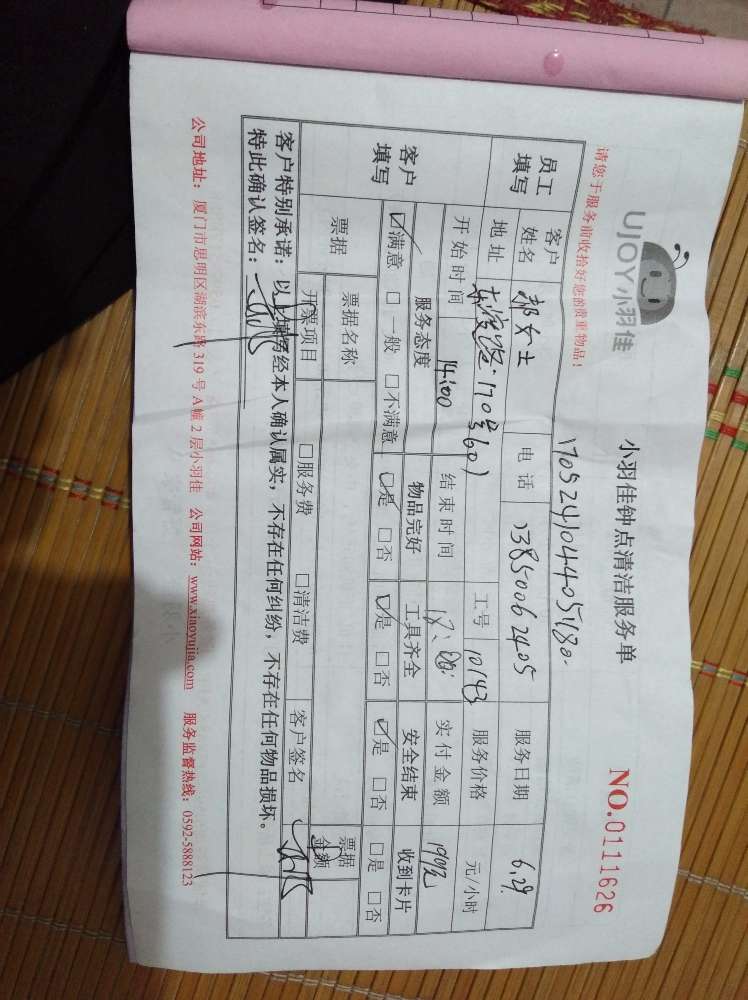 UJOY小羽佳
小羽佳钟点清洁服务单
NO.0111626
请您于服务前收拾好您的贵重物品！
员工填写
客户姓名 郝女士 电话 13850062405 服务日期 6.29
地址 170号601 工号 10143 服务价格 元/小时
开始时间 14:00 结束时间 18:00 实付金额
客户填写
服务态度 物品完好 工具齐全 安全结束 收到卡片
☑满意 □一般 □不满意 ☑是 □否 ☑是 □否 ☑是 □否 □是 □否
票据 票据名称 客户签名 票据金额
开票项目 □服务费 □清洁费
客户特别承诺：以上填写经本人确认属实，不存在任何纠纷，不存在任何物品损坏。
特此确认签名：
公司地址：厦门市思明区湖滨东路319号A幢2层小羽佳 公司网站：www.xiaoyujia.com 服务监督热线：0592-5888123